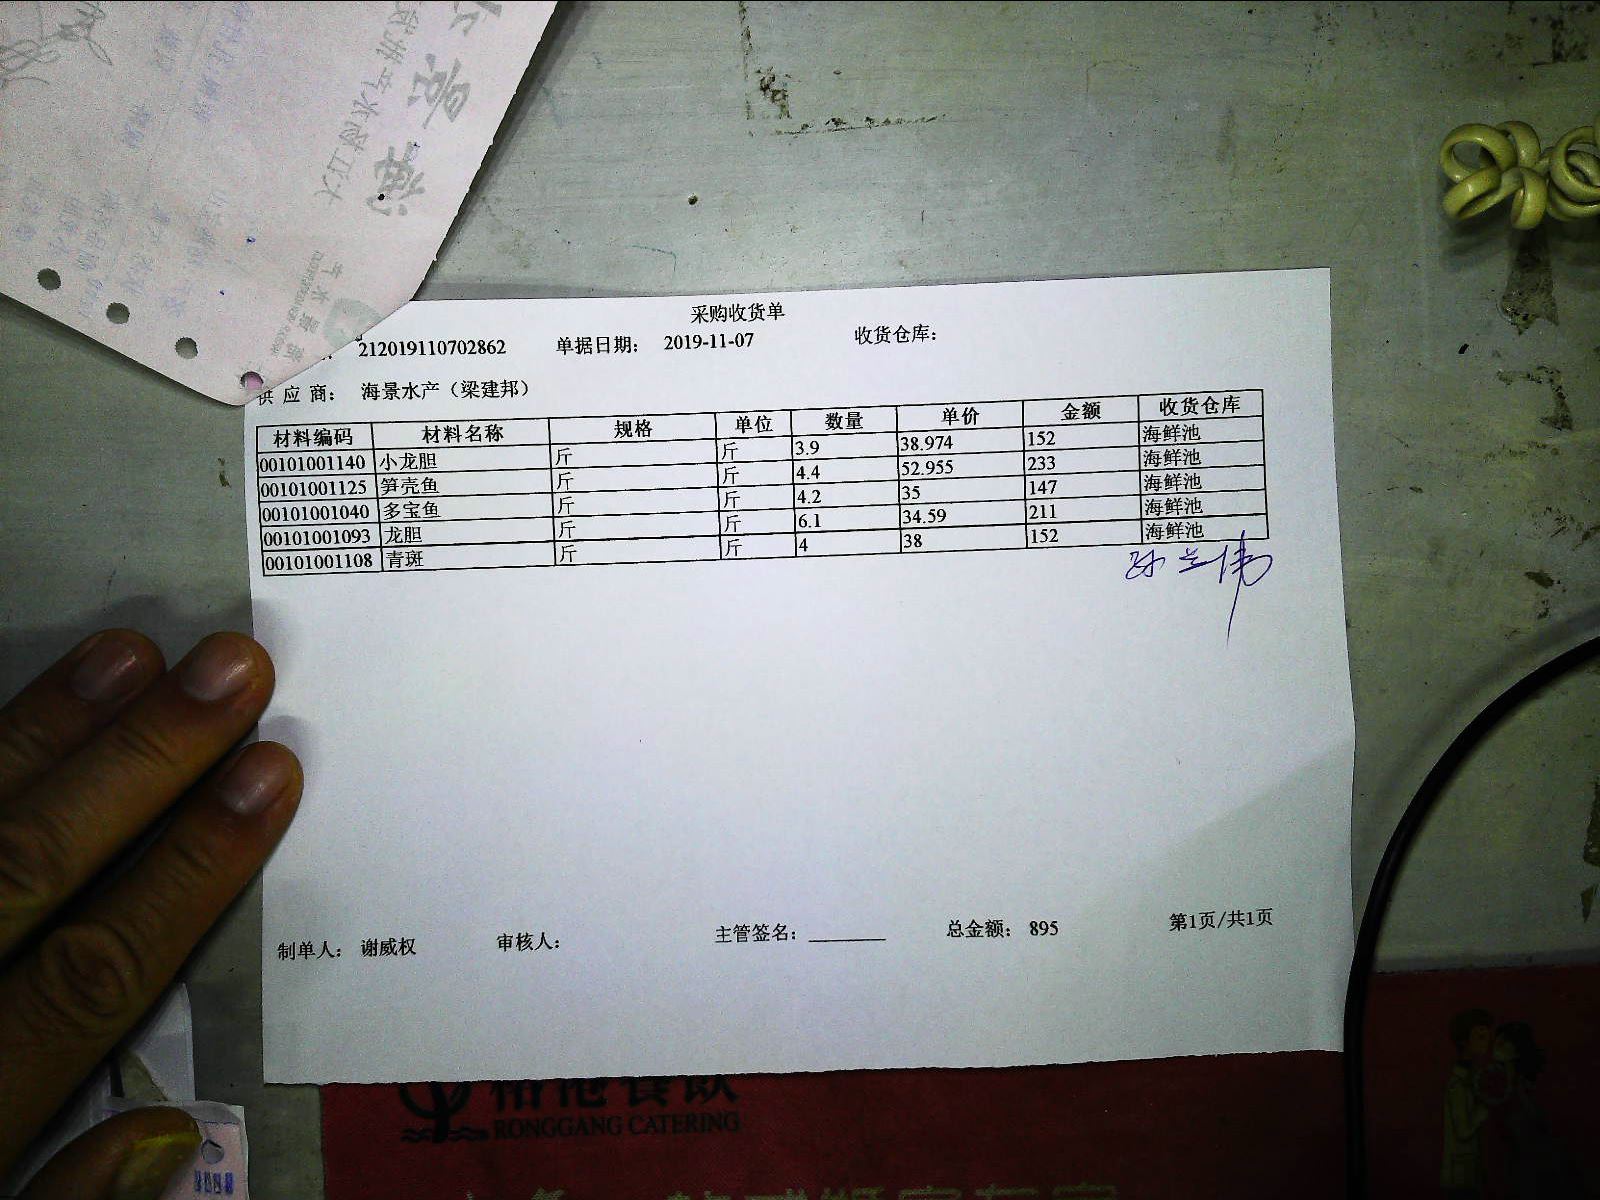 采购收货单
212019110702862 单据日期: 2019-11-07 收货仓库:
供 应 商: 海景水产（梁建邦）
材料编码 材料名称 规格 单位 数量 单价 金额 收货仓库
00101001140 小龙胆 斤 斤 3.9 38.974 152 海鲜池
00101001125 笋壳鱼 斤 斤 4.4 52.955 233 海鲜池
00101001040 多宝鱼 斤 斤 4.2 35 147 海鲜池
00101001093 龙胆 斤 斤 6.1 34.59 211 海鲜池
00101001108 青斑 斤 斤 4 38 152 海鲜池
制单人: 谢威权 审核人: 主管签名: 总金额: 895 第1页/共1页
RONGGANG CATERING